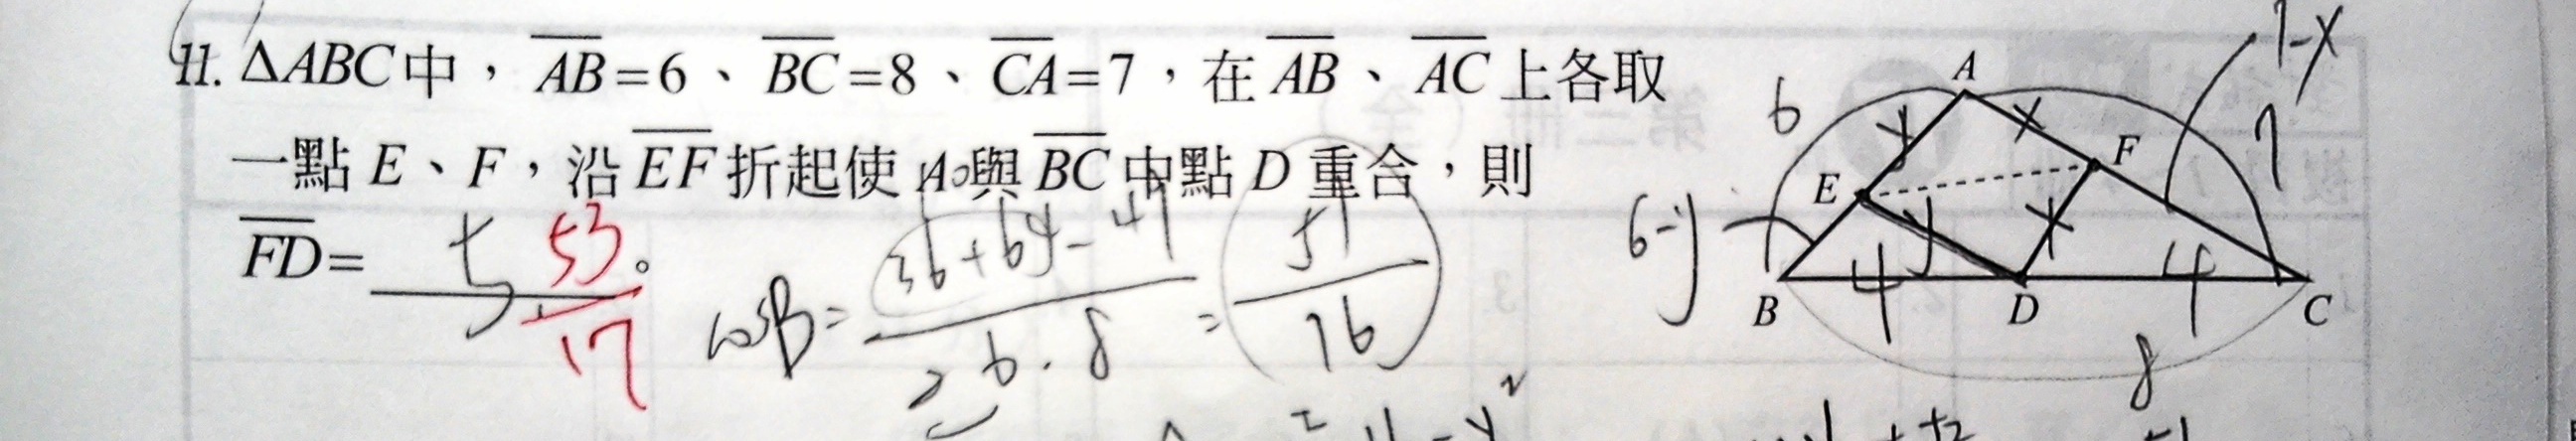 11. ΔABC中，AB=6、BC=8、CA=7，在AB、AC上各取
一點E、F，沿EF折起使A與BC中點D重合，則
FD= 5 53/17。
cosB= 36+64-49/2·6·8 = 51/96
A
B
C
D
E
F
6
7
8
4
4
x
x
y
y
6-y
7-x